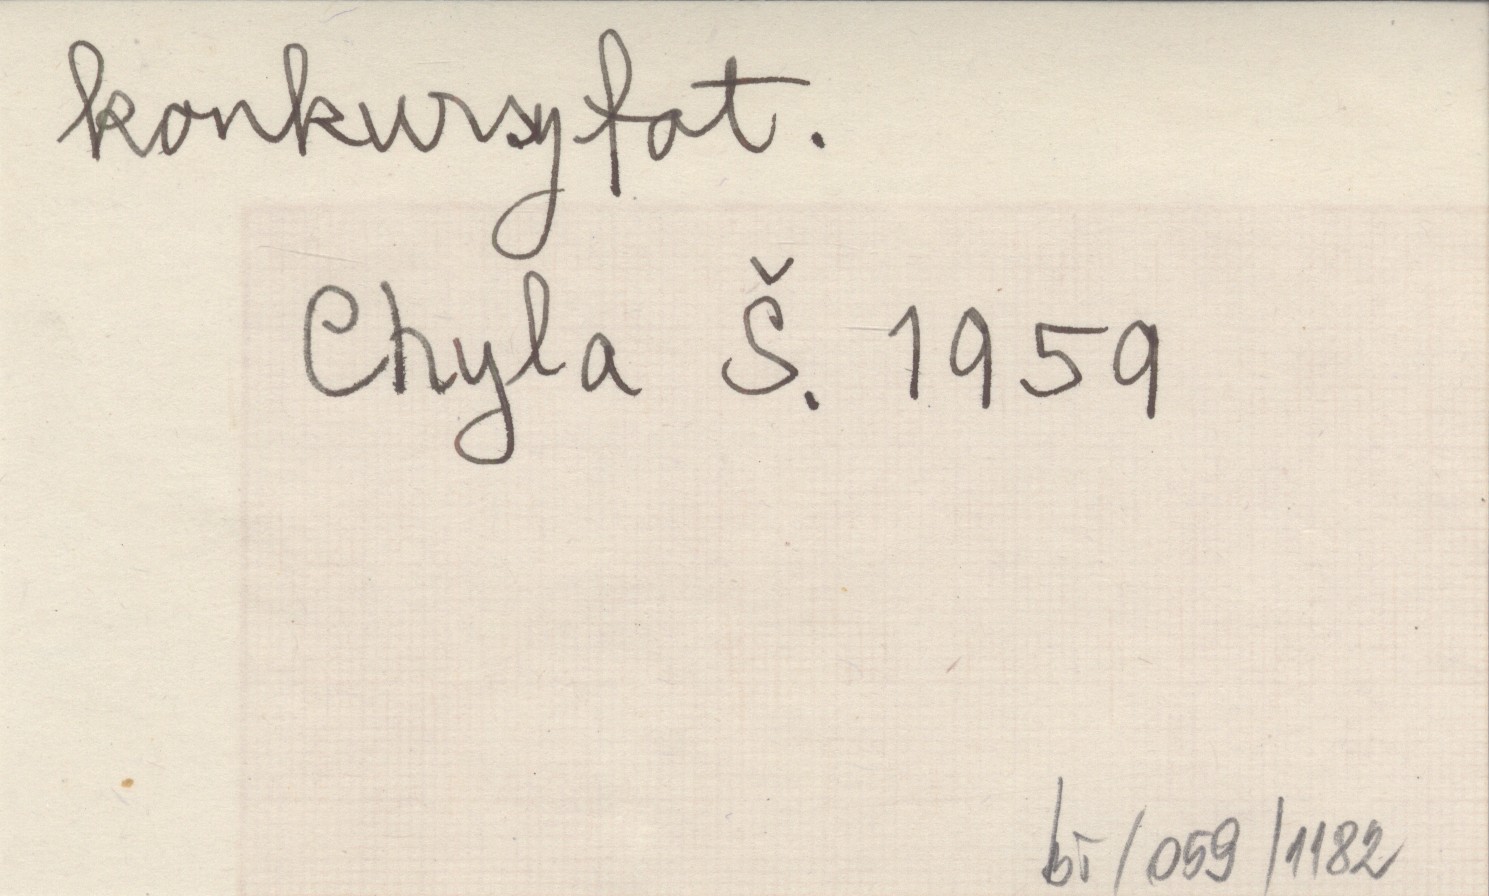 konkursy fot.
Chyla Š. 1959
bš/059/1182